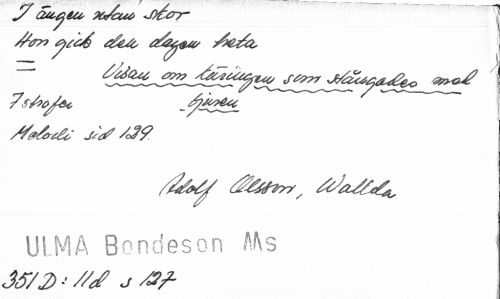 I ängen utan skor
Hon gick den dagen heta
=
Visan om käringen som stångades med
7 strofer tjuren
Melodi sid 129.
Adolf Olsson, Wallda
ULMA Bondeson Ms
351 D: 11d s 127